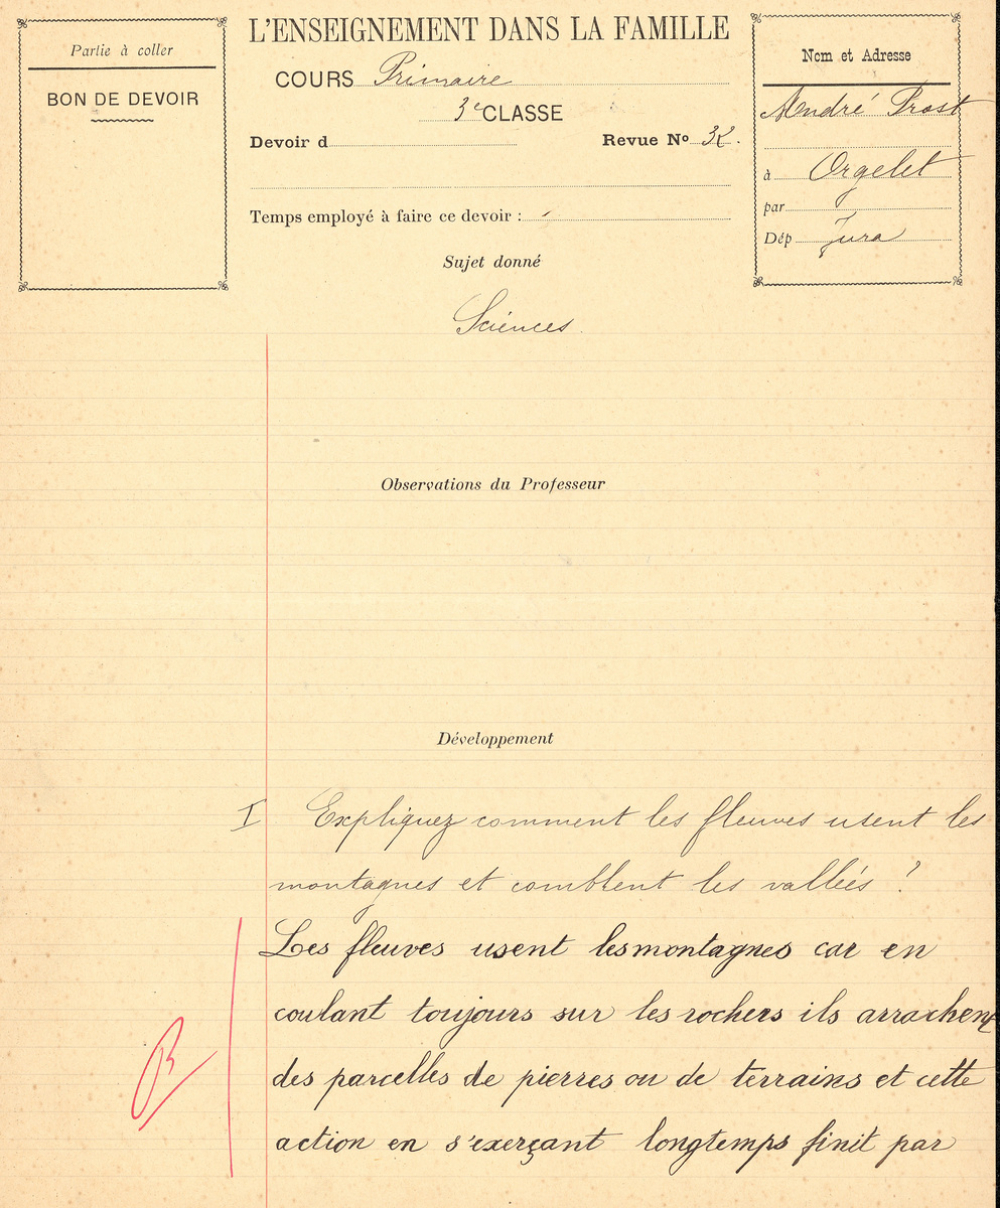 Partie à coller
BON DE DEVOIR
L'ENSEIGNEMENT DANS LA FAMILLE
COURS Primaire
3e CLASSE
Devoir d
Revue No 32.
Temps employé à faire ce devoir :
Nom et Adresse
André Prost
à Orgelet
par
Dép Jura
Sujet donné
Sciences.
Observations du Professeur
Développement
I Expliquez comment les fleuves usent les
montagnes et comblent les valleés ?
Les fleuves usent les montagnes car en
coulant toujours sur les rochers ils arrachent
des parcelles de pierres ou de terrains et cette
B
action en s'exerçant longtemps finit par